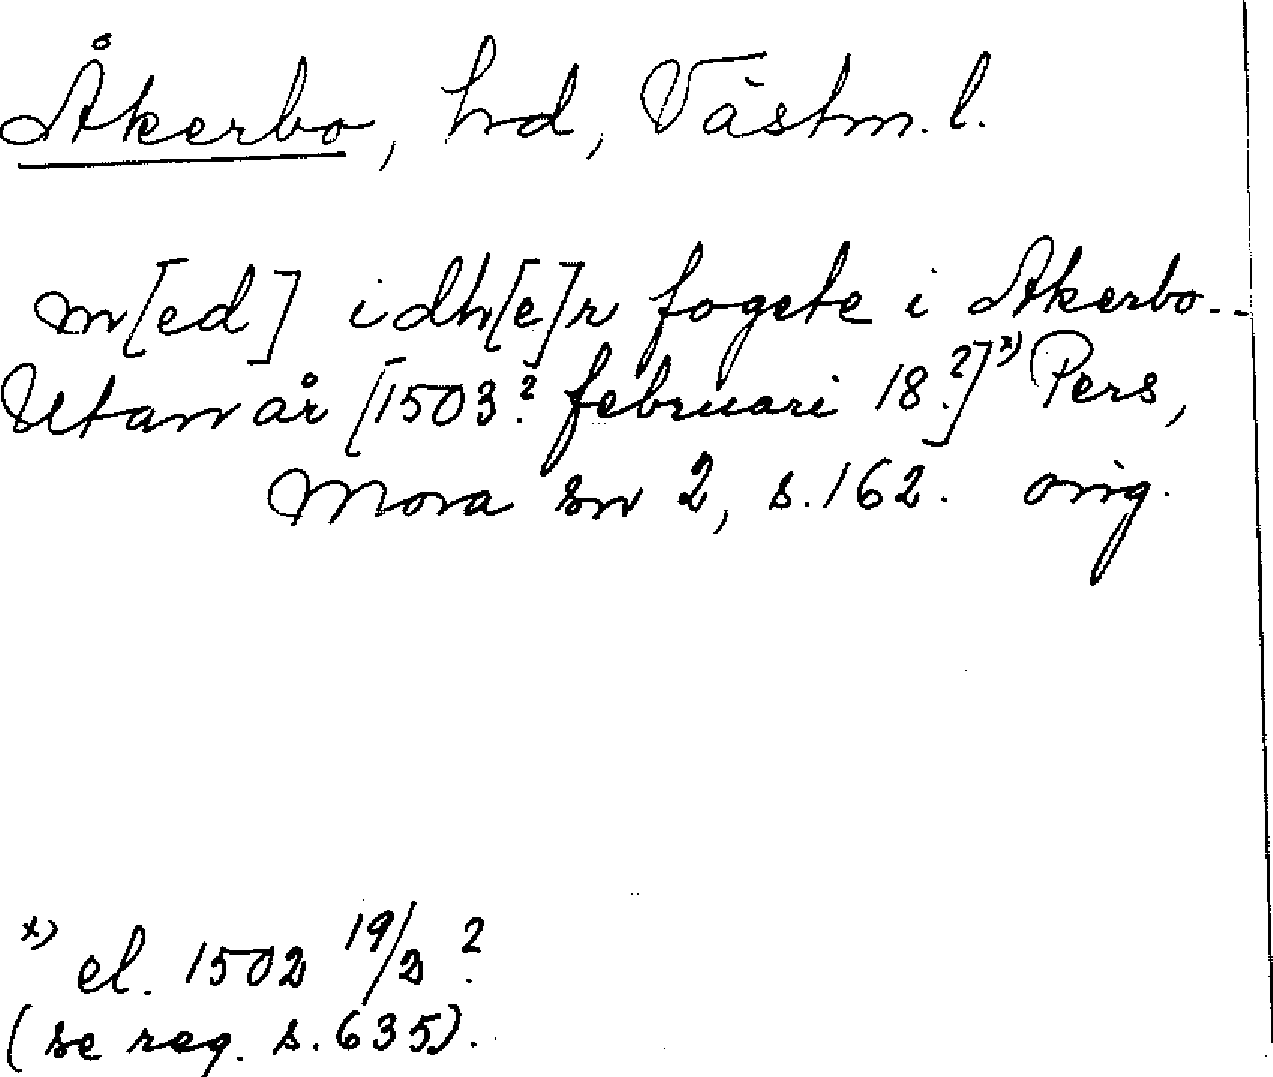 Åkerbo, hd, Västm. l.
m[ed] idh[e]r fogete i Akerbo--
Utan år [1503? februari 18?]x) Pers,
Mora sn 2, s. 162. orig.
x) el. 1502 19/2?
(se reg. s. 635).